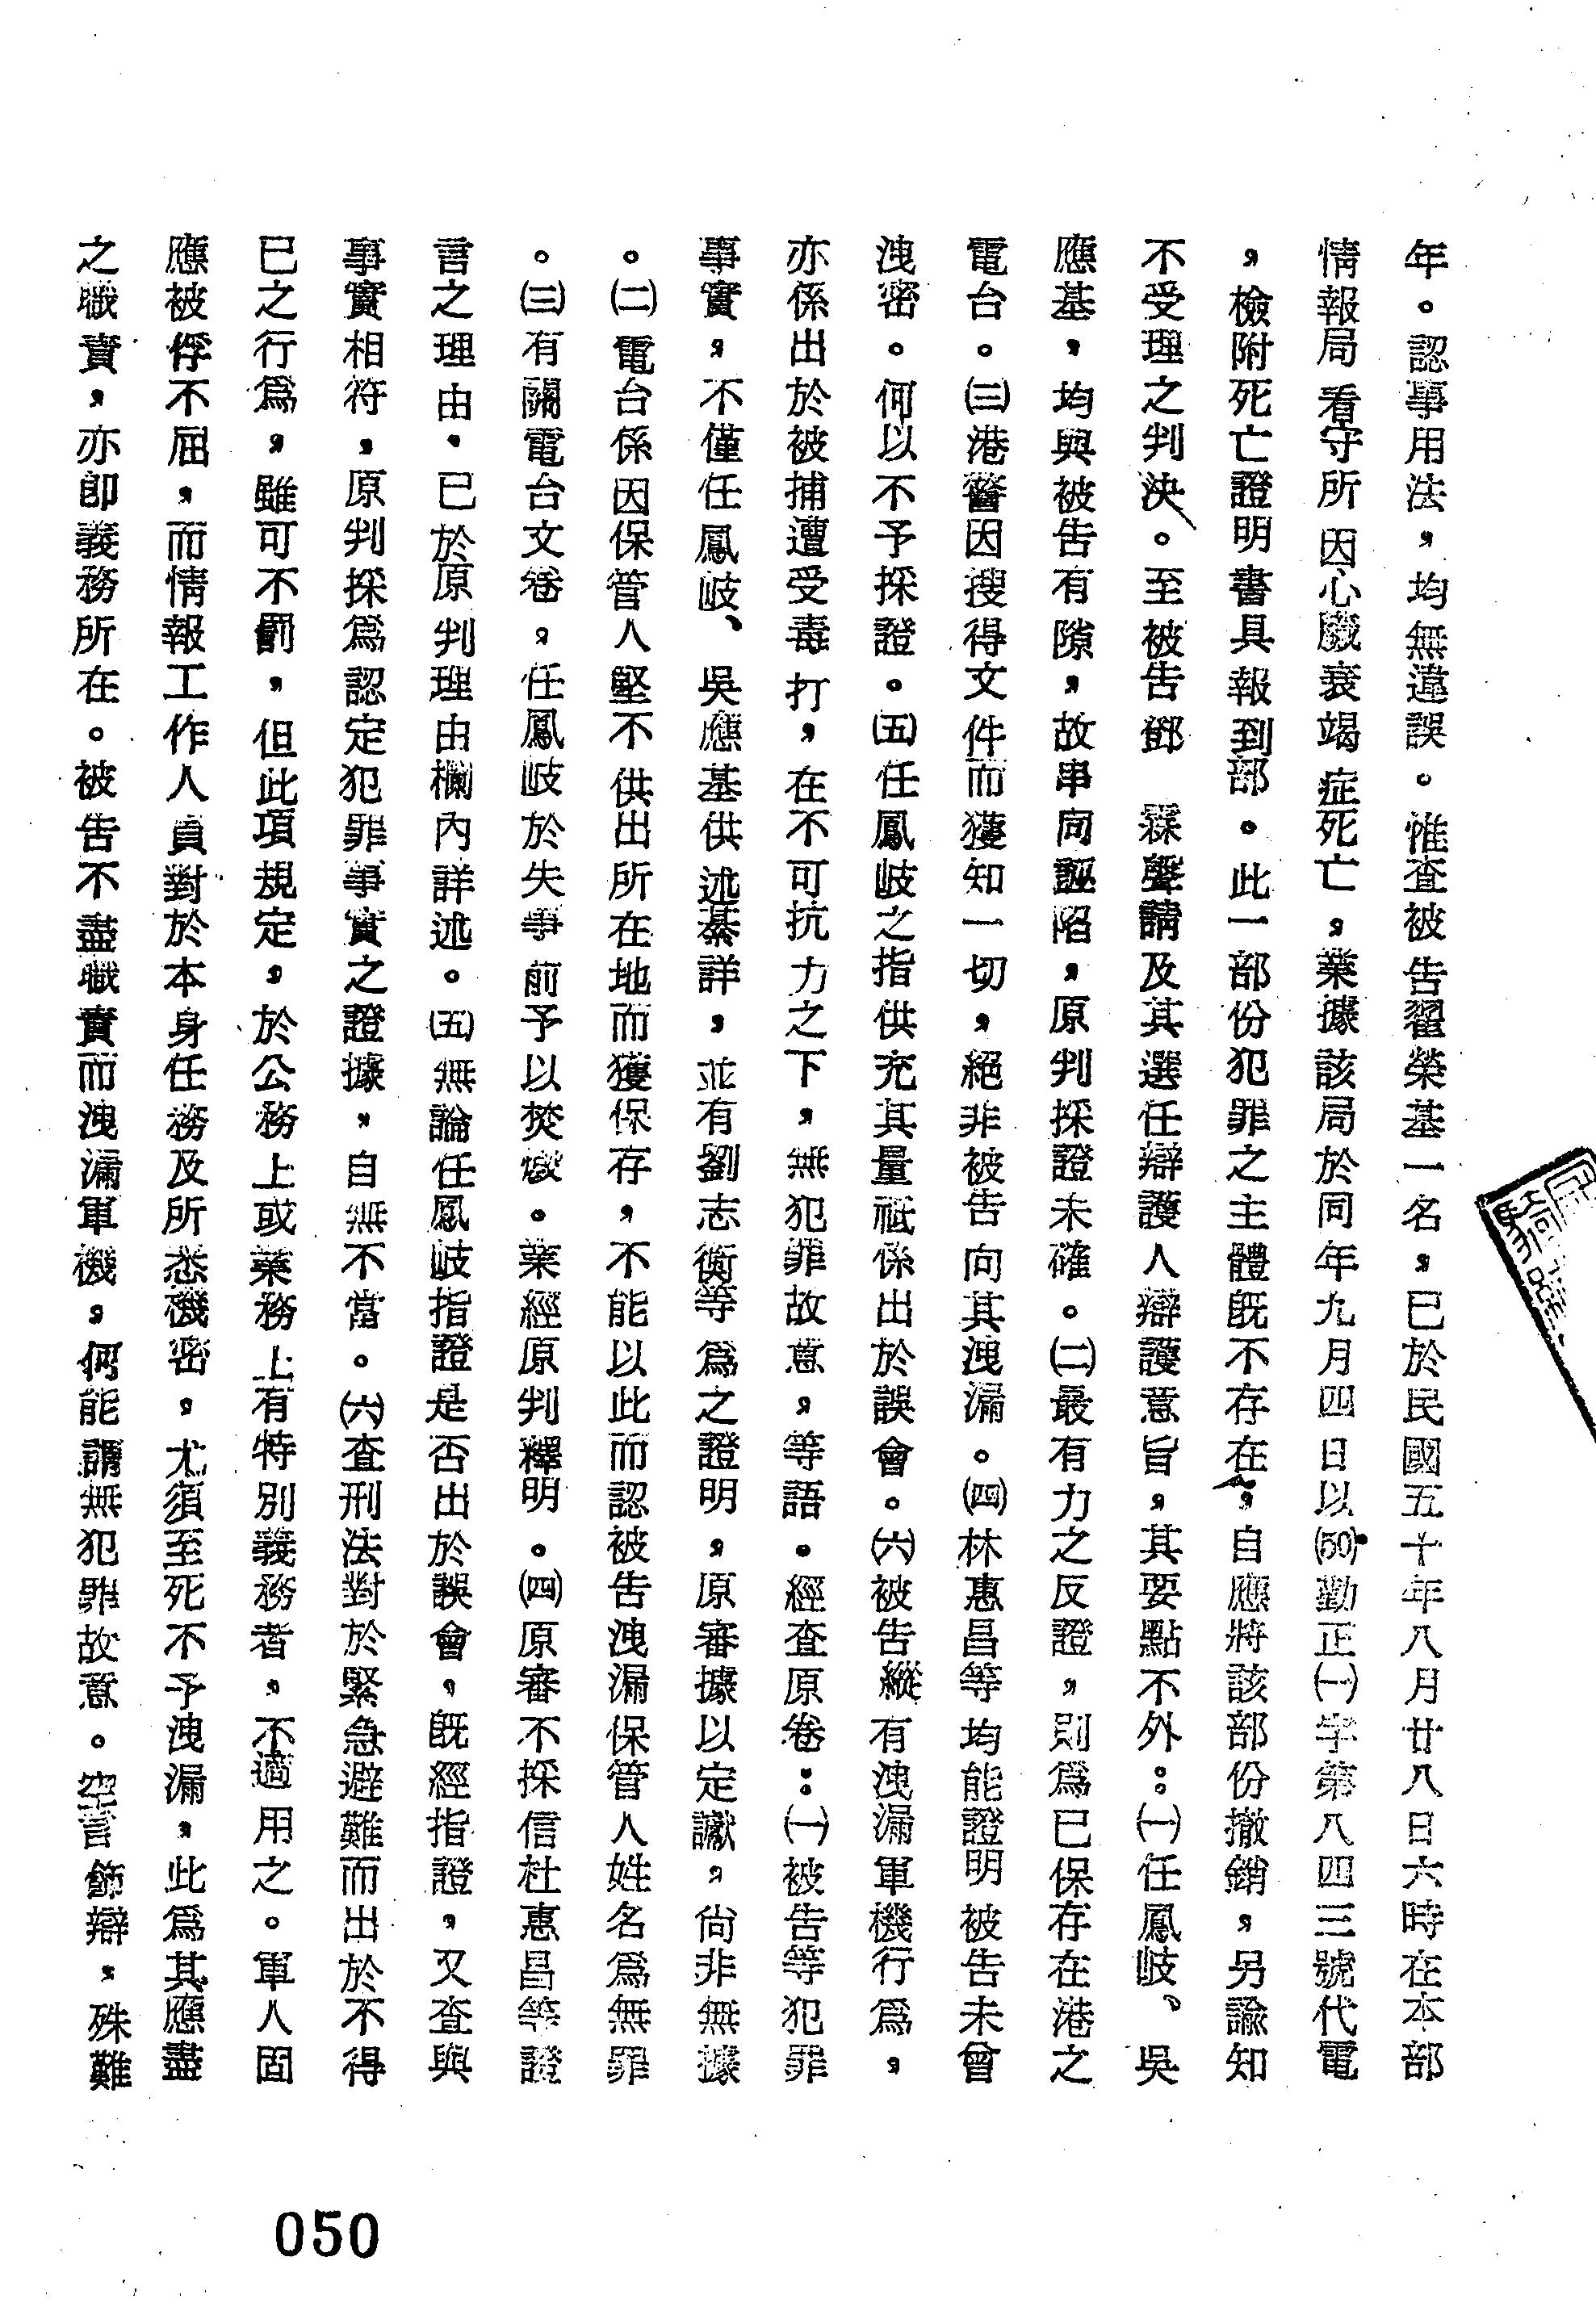 年。認事用法，均無違誤。惟查被告翟榮基一名，已於民國五十年八月廿八日六時在本部
情報局看守所因心臟衰竭症死亡，業據該局於同年九月四日以(50)勤正㈠字第八四三號代電
，檢附死亡證明書具報到部。此一部份犯罪之主體旣不存在，自應將該部份撤銷，另諭知
不受理之判決。至被告鄧　霖聲請及其選任辯護人辯護意旨，其要點不外：㈠任鳳岐、吳
應基，均與被告有隙，故串同誣陷，原判採證未確。㈡最有力之反證，則爲已保存在港之
電台。㈢港警因搜得文件而獲知一切，絕非被告向其洩漏。㈣林惠昌等均能證明被告未曾
洩密。何以不予採證。㈤任鳳岐之指供充其量祇係出於誤會。㈥被告縱有洩漏軍機行爲，
亦係出於被捕遭受毒打，在不可抗力之下，無犯罪故意，等語。經查原卷：㈠被告等犯罪
事實，不僅任鳳岐、吳應基供述綦詳，並有劉志衡等爲之證明，原審據以定讞，尙非無據
。㈡電台係因保管人堅不供出所在地而獲保存，不能以此而認被告洩漏保管人姓名爲無罪
。㈢有關電台文卷，任鳳岐於失事前予以焚燬。業經原判釋明。㈣原審不採信杜惠昌等證
言之理由，已於原判理由欄內詳述。㈤無論任鳳岐指證是否出於誤會，旣經指證，又查與
事實相符，原判採爲認定犯罪事實之證據，自無不當。㈥查刑法對於緊急避難而出於不得
已之行爲，雖可不罰，但此項規定，於公務上或業務上有特別義務者，不適用之。軍人固
應被俘不屈，而情報工作人員對於本身任務及所悉機密，尤須至死不予洩漏，此爲其應盡
之職責，亦卽義務所在。被告不盡職責而洩漏軍機，何能謂無犯罪故意。空言飾辯，殊難
050